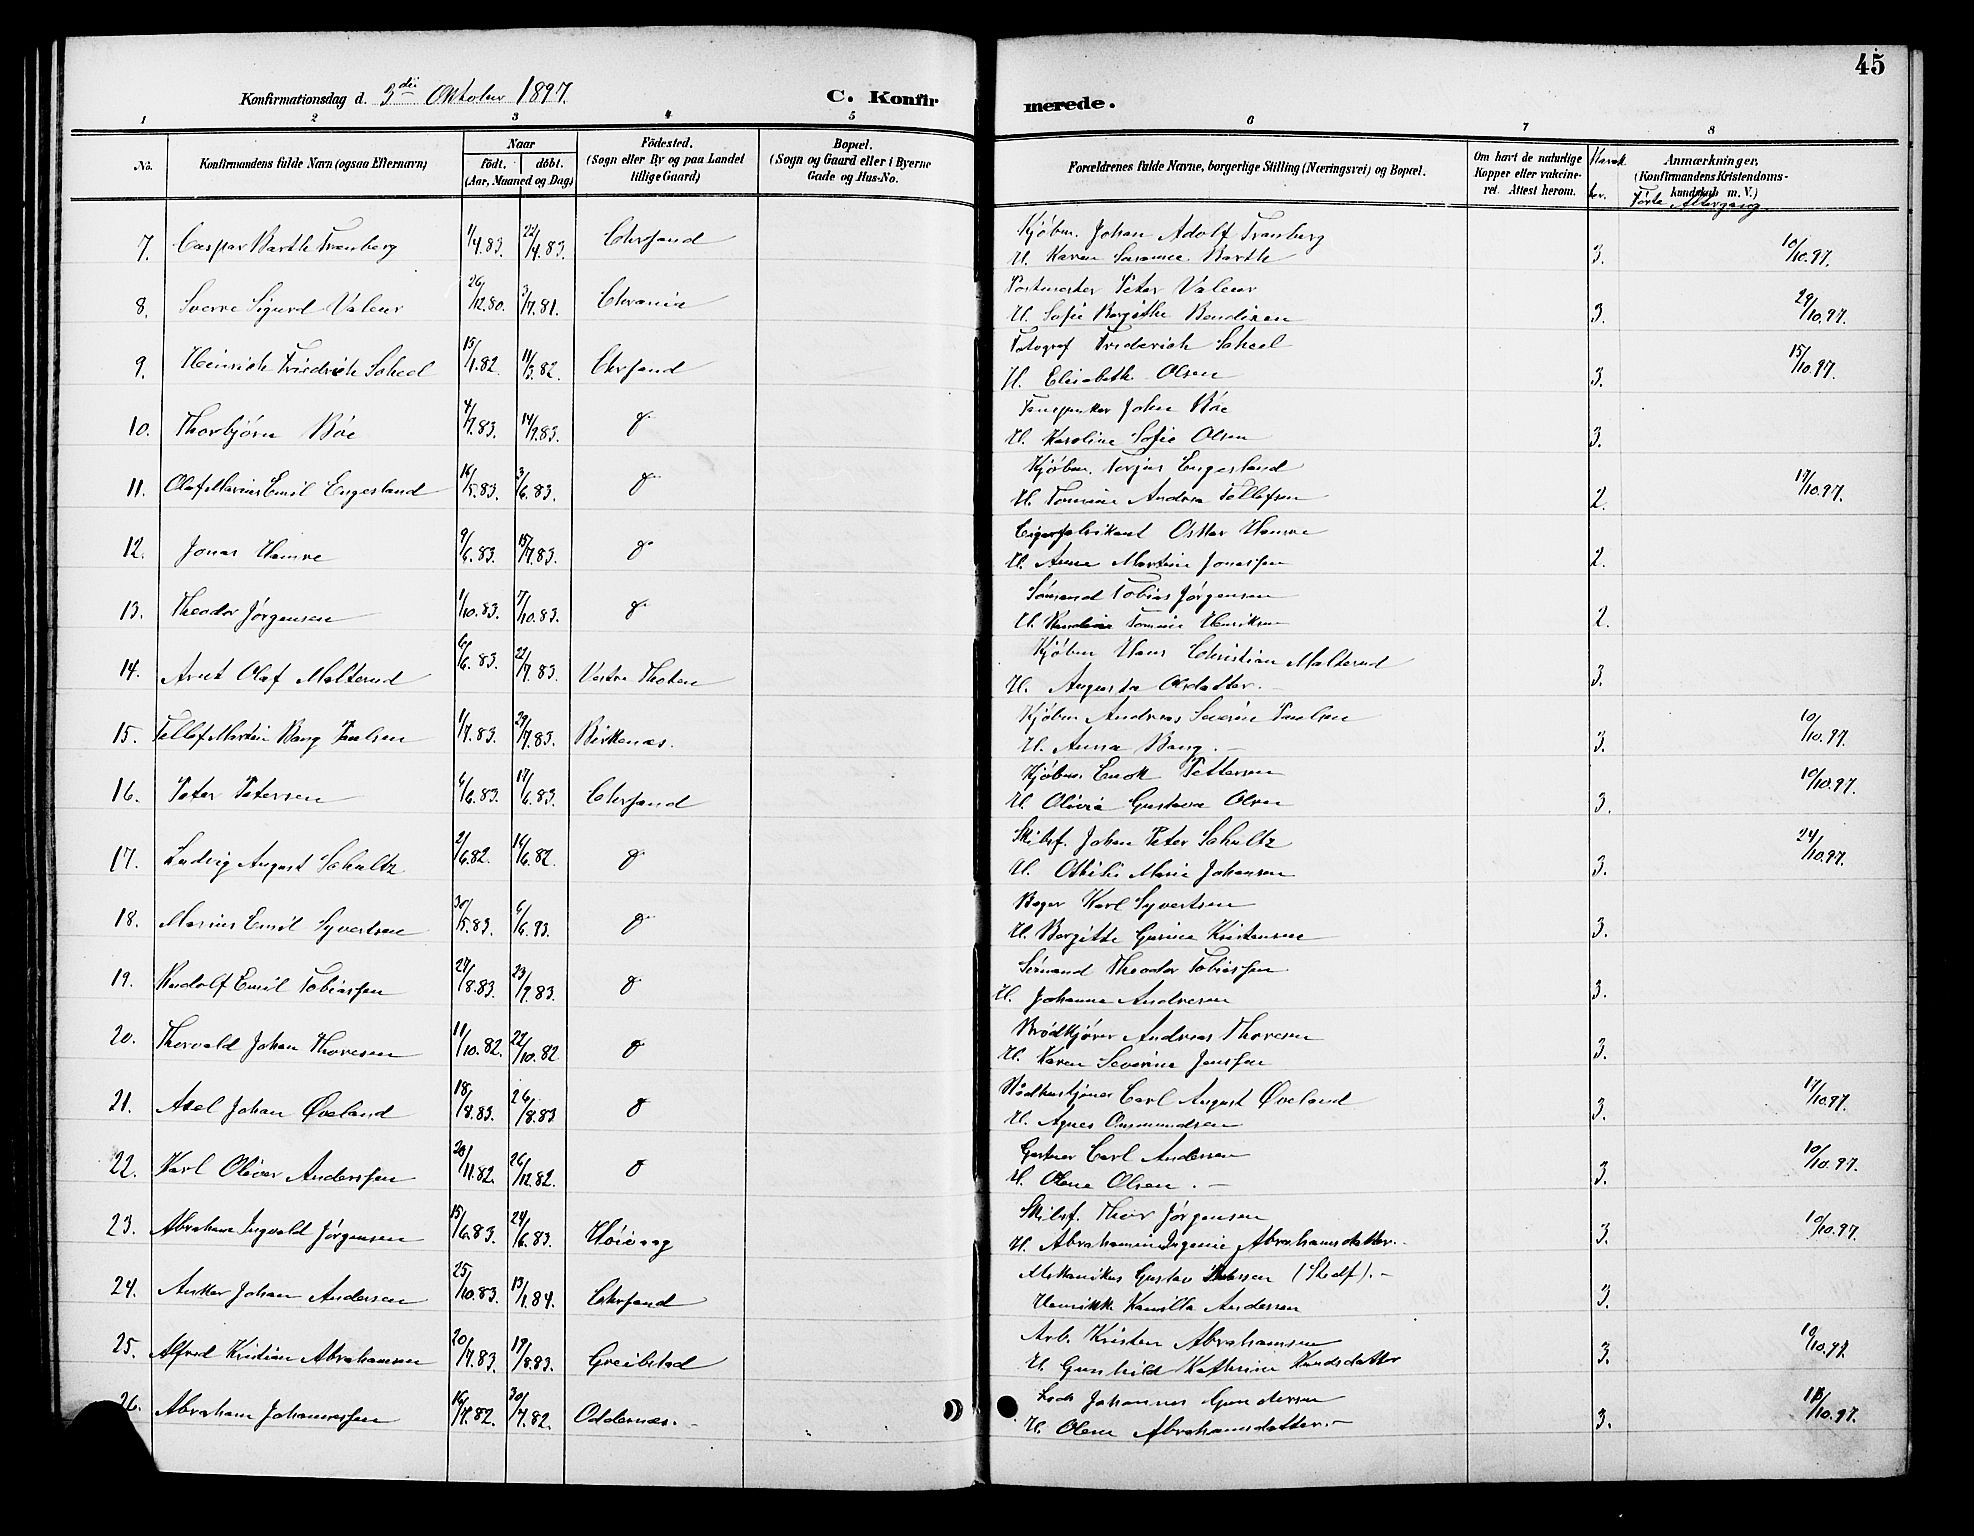 45
Konfirmationsdag d. 3die Oktober 1897.
C. Konfirmerede.
1 2 3 4 5 6 7 8
No.
Konfirmandens fulde Navn (ogsaa Efternavn)
Naar
født. døbt.
(Aar, Maaned og Dag)
Fødested.
(Sogn eller By og paa Landet tillige Gaard)
Bopæl.
(Sogn og Gaard eller i Byerne Gade og Hus-No.
Forældrenes fulde Navne, borgerlige Stilling (Næringsvei) og Bopæl.
Om havt de naturlige Kopper eller vakcineret. Attest herom.
Karakter.
Anmærkninger,
(Konfirmandens Kristendomskundskab m. V.)
Første Altergang
7. Caspar Barth Tranberg 1/4.83. 22/4.83. Chrsand Kjøbm. Johan Adolf Tranberg
H. Karen Barth 3. 10/10.97.
8. Sverre Sigurd Valeur 26/12.80. 3/7.81. Chrania Postmester Peter Valeur
H. Sofie Bergithe Bendixen 3. 29/10.97.
9. Heinrich Friedrich Scheel 15/1.82. 11/3.82. Chrsand Fotograf Frederich Scheel
H. Elisabeth Olsen 3. 15/10.97.
10. Thorbjørn Bøe 4/7.83. 14/9.83. do John Bøe
H. Karoline Sofie Olsen 3.
11. Olaf Marius Emil Engesland 16/5.83. 3/6.83. do Kjøbm. Terjus Engesland
H. Tomine Andrea Tellefsen 2. 17/10.97.
12. Jonas Hamre 9/6.83. 15/7.83. do Cigarfabrikant Oskar Hamre
H. Anne Martine Jonassen 2.
13. Theodor Jørgensen 1/10.83. 7/10.83. do Sømand Tobias Jørgensen
H. Tomine Henriksen 2.
14. Arnt Olaf Malterud 6/6.83. 22/7.83. Vestre Thoten Kjøbm Hans Christian Malterud
H. Augusta Olsdatter. 3.
15. Tellef Martin Bang Paulsen 1/7.83. 29/7.83. Birkenæs. Kjøbm Andreas Severin Paulsen
H. Anna Bang. 3. 10/10.97.
16. Peter Petersen 6/6.83. 17/6.83. Chrsand Kjøbm Enok Pettersen
H. Olivia Gustava Olsen 3. 10/10.97.
17. Ludvig August Schultz 2/6.82. 14/6.82. do Skibsf. Johan Peter Schultz
H. Othilie Marie Johansen 3. 24/10.97.
18. Marius Emil Syvertsen 30/5.83. 6/6.93. do Bager Karl Syvertsen
H. Bergitte Gurine Kristensen 3.
19. Rudolf Emil Tobiassen 27/8.83. 23/9.83. do Sømand Theodor Tobiassen
H. Johanne Andresen 3.
20. Thorvald Johan Thoresen 11/10.82. 22/10.82 do Brødkjører Andreas Thoresen
H. Karen Severine Janssen 3.
21. Axel Johan Øveland 18/8.83. 26/8.83 do Carl August Øveland
H. Agnes Omsmundsen 3. 17/10.97.
22. Karl Oliver Anderssen 20/11.82. 26/12.82. do Gartner Carl Andersen
H. Olene Olsen. 3. 10/10.97.
23. Abraham Ingvald Jørgensen 15/6.83. 24/6.83. Høivaag Skibsf. Thor Jørgensen
H. Abrahamine Ingenie Abrahamsdatter. 3. 10/10.97.
24. Anker Johan Andersen 25/10.83. 13/1.84. Chrsand Mekanikus Gustav
Henrikke Kamilla Andersen 3.
25. Alfred Kristian Abrahamsen 20/7.83. 19/8.83. Greibstad Arb. Kristen Abrahamsen
H. Gunhild Kathrine Knudsdatter 3. 10/10.97.
26. Abraham Johannessen 16/7.82. 30/7.82. Oddernæs. Lods Johannes Gundersen
H. Olene Abrahamsdatter. 3. 10.97.